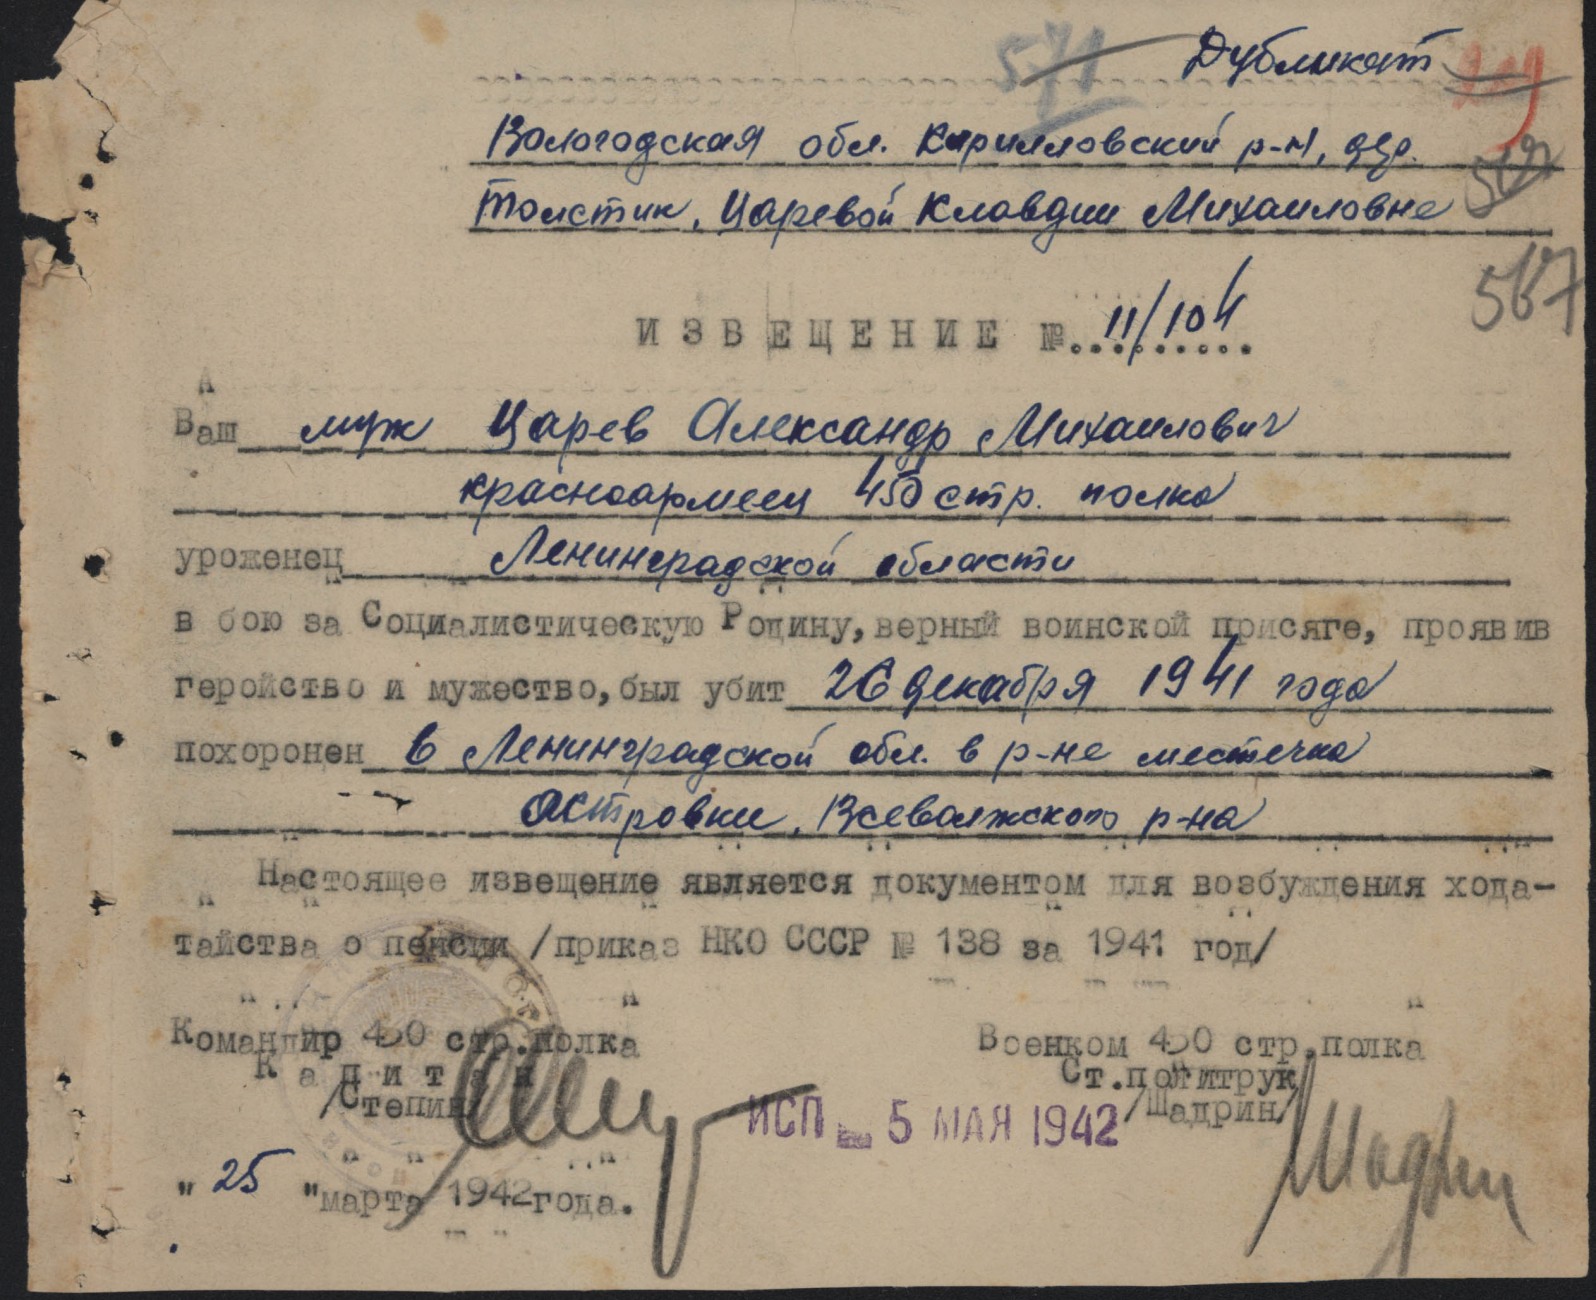 571 Дубликат
Вологодская обл. Кирилловский р-н, дер.
Толстик, Царевой Клавдии Михайловне
567
ИЗВЕЩЕНИЕ № 11/104
Ваш муж Царев Александр Михайлович
красноармеец 450 стр. полка
уроженец Ленинградской области
в бою за Социалистическую Родину, верный воинской присяге, проявив
геройство и мужество, был убит 26 декабря 1941 года
похоронен в Ленинградской обл. в р-не местечка
Островки, Всеволжского р-на
Настоящее извещение является документом для возбуждения хода-
тайства о пенсии /приказ НКО СССР № 138 за 1941 год/
Командир 450 стр.полка Военком 450 стр.полка
Капитан Ст.политрук
/Степин/ /Шадрин/
ИСП 5 МАЯ 1942
Шадрин
"25 "марта 1942года.